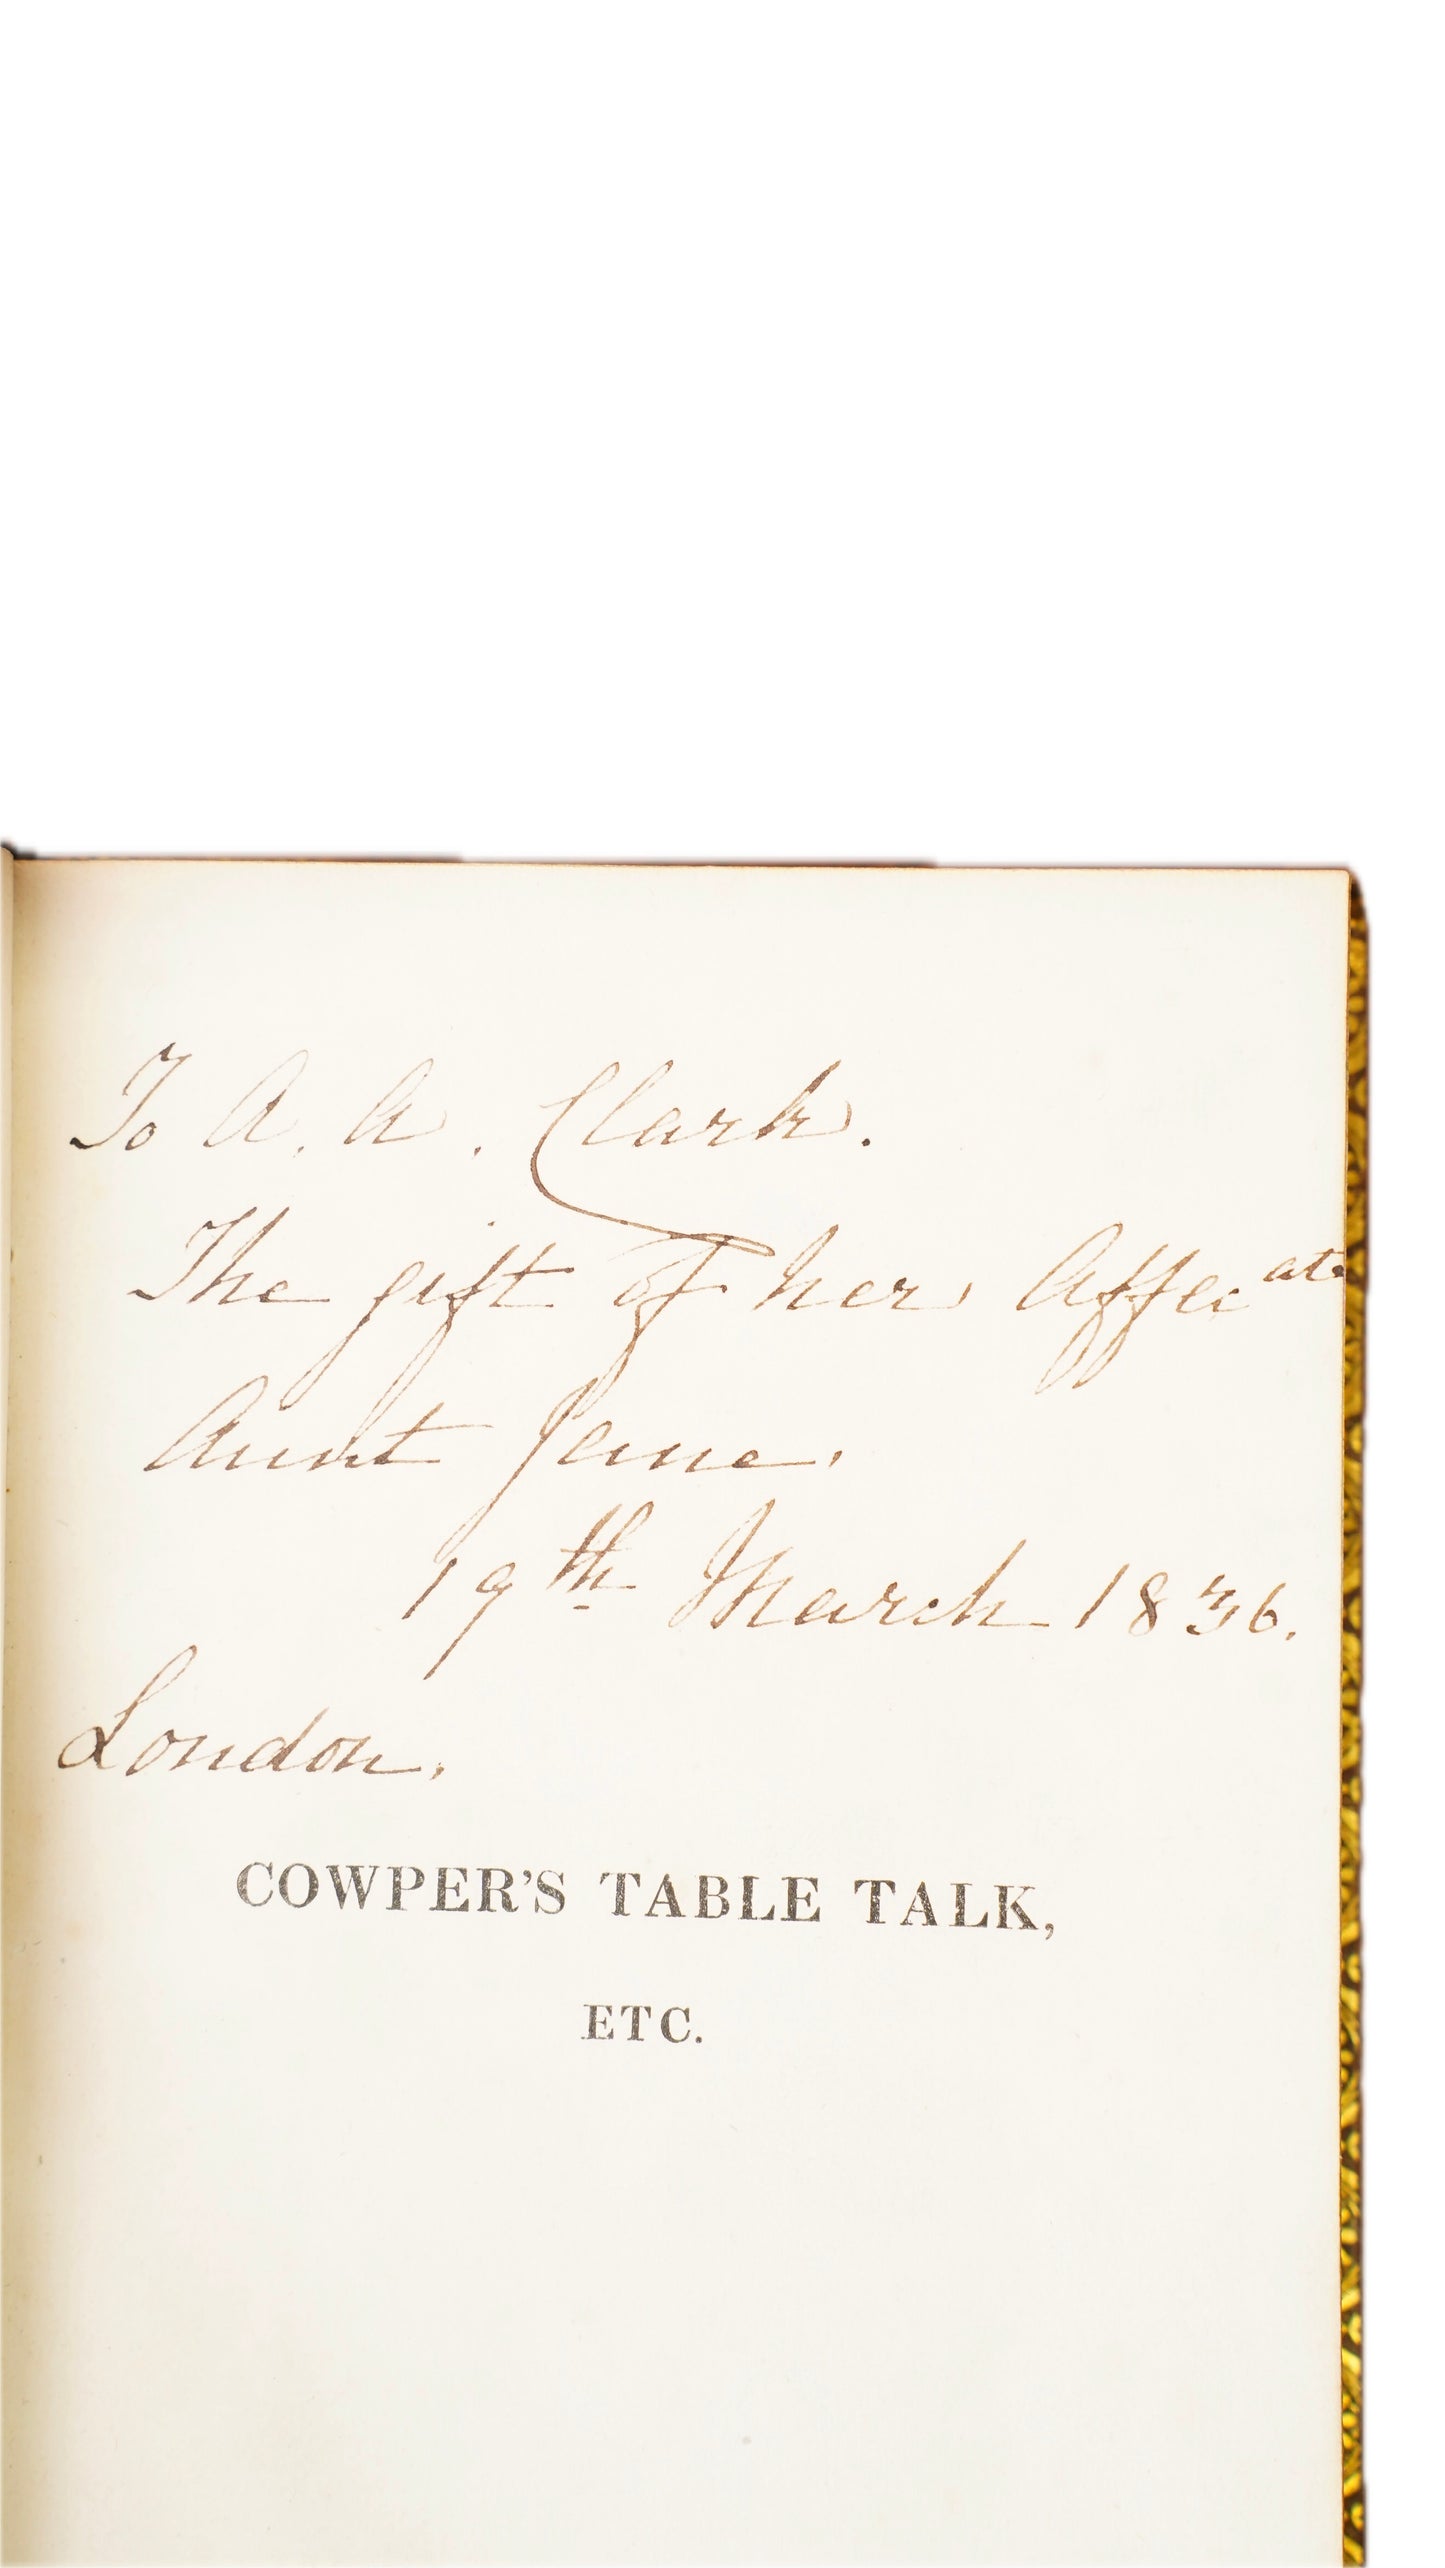 To A. A. Clark.
The gift of her Affec ate
Aunt Jane.
19th March 1836.
London.
COWPER'S TABLE TALK,
ETC.